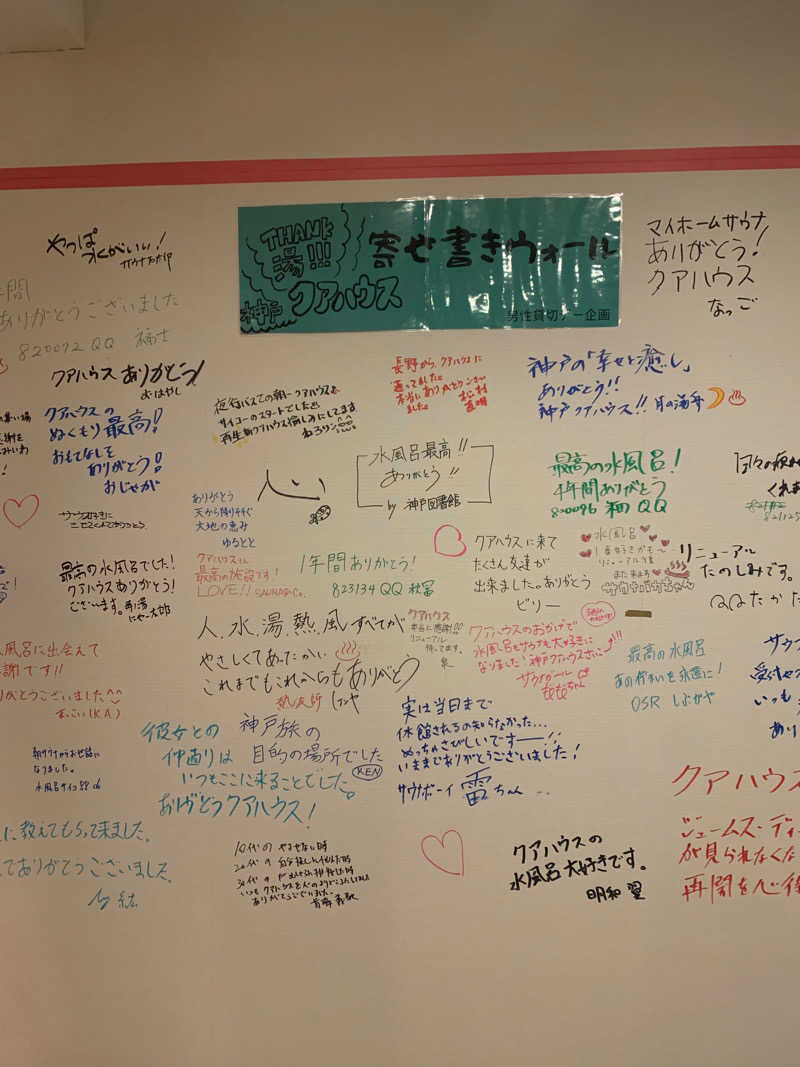 THANK
湯!!!
神戸
クアハウス
寄せ書きウォール
男性貸切デー企画
やっぱ
水がいい!
マイホームサウナ
ありがとう!
クアハウス
なっご
ありがとうございました
820092 QQ 福士
クアハウスありがとう!
おはやし
クアハウスの
ぬくもり最高!
おもてなしを
ありがとう!
おじゃが
夜行バスでの朝一クアハウスは
サイコーのスタートでした
再生新クアハウス楽しみにしてます
ねろリン
長野から、クアハウスに
通ってました
本当にありがとうござい
ました
神戸の「幸せと癒し」
ありがとう!!
神戸クアハウス!! 月の湯舟
心
ありがとう
天から降りそそぐ
大地の恵み
ゆるとと
水風呂最高!!
ありがとう!!
by 神戸図書館
最高の水風呂!
4年間ありがとう
820096 QQ
日々の疲れ
くれま
最高の水風呂でした!
クアハウスありがとう!
ございます。
クアハウスさん
最高の施設です!
LOVE!! SAUNA& Co.
1年間ありがとう!
823134 QQ 秋富
クアハウスに来て
たくさん友達が
出来ました。ありがとう
ビリー
水風呂
1番好きかも〜
リニューアル後
また来ます
リニューアル
たのしみです。
QQたかた
人、水、湯、熱、風 すべてが
やさしくてあたたかい
これまでもこれからもありがとう
クアハウス
本当に感謝!!!
リニューアル
待ってます。
泉
クアハウスのおかげで
水風呂とサウナも大好きに
なりました!神戸クアハウスさいこー!!!
サウナガール
ももちゃん
最高の水風呂
あの賑わいを永遠に!
OSR しぶがや
風呂に出会えて
謝です!!
りがとうございました^^
(KA)
朝サウナからお世話に
なりました。
水風呂サイコー!!
彼女との
仲直りは
いつもここに来ることでした。
ありがとうクアハウス!
神戸旅の
目的の場所でした
REN
実は当日まで
休館されるの知らなかった...
めっちゃさびしいですー!!
いままでありがとうございました!
サウナボーイ 雷ちゃん
クアハウス
ジェームス・ディ
が見られなくな
再開を心待
に教えてもらって来ました。
てありがとうございました。
10代の やるせない時
20代の
30代の
いつもクアハウスさんのよりどころでした
ありがとうございました。
クアハウスの
水風呂大好きです。
明和 翌